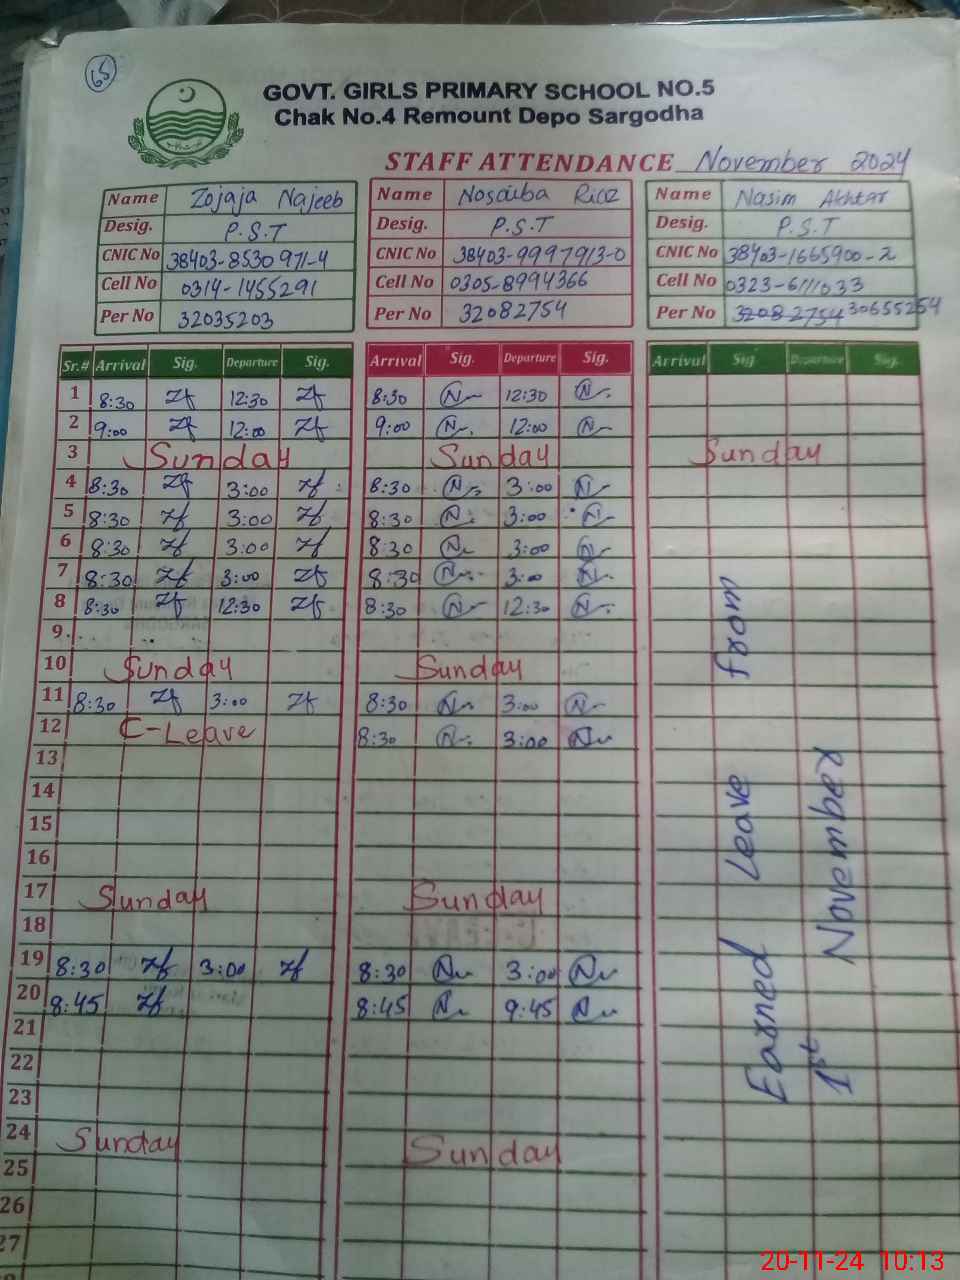 65
GOVT. GIRLS PRIMARY SCHOOL NO.5
Chak No.4 Remount Depo Sargodha
STAFF ATTENDANCE November 2024
Name Zojaja Najeeb Name Nosaiba Riaz Name Nasim Akhtar
Desig. P.S.T Desig. P.S.T Desig. P.S.T
CNIC No 38403-8530971-4 CNIC No 38403-9997913-0 CNIC No 38403-1665900-2
Cell No 0314-1455291 Cell No 0305-8994366 Cell No 0323-6111033
Per No 32035203 Per No 32082754 Per No 32082754 30655254
Sr.# Arrival Sig. Departure Sig. Arrival Sig. Departure Sig. Arrival Sig Departure Sig.
1 8:30 Zf 12:30 Zf 8:30 N 12:30 N
2 9:00 Zf 12:00 Zf 9:00 N 12:00 N
3 Sunday Sunday Sunday
4 8:30 Zf 3:00 Zf 8:30 N 3:00 N
5 8:30 Zf 3:00 Zf 8:30 N 3:00 N
6 8:30 Zf 3:00 Zf 8:30 N 3:00 N
7 8:30 Zf 3:00 Zf 8:30 N 3:00 N
8 8:30 Zf 12:30 Zf 8:30 N 12:30 N
9
10 Sunday Sunday
11 8:30 Zf 3:00 Zf 8:30 N 3:00 N
12 C-Leave 8:30 N 3:00 N
13
14
15
16
17 Sunday Sunday
18
19 8:30 Zf 3:00 Zf 8:30 N 3:00 N
20 8:45 Zf 8:45 N 9:45 N
21
22
23
24 Sunday Sunday
25
26
27
Earned Leave from
1st November
20-11-24 10:13